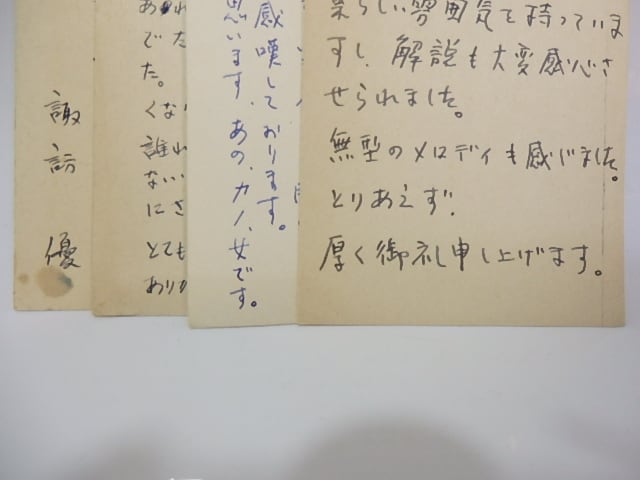 らしい雰囲気を持っていま
すし、解説も大変感心さ
せられました。
無型のメロディも感じました。
とりあえず、
厚く御礼申し上げます。
感嘆しております。
思います、あの、カノ、女です。
あ
れた
でた。
くない
誰れ
ない
にさ
とても
ありが
諏訪 優